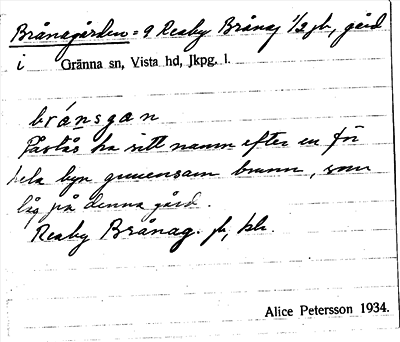 Brånagården = 9 Reaby Brånag 1/2 jb, gård
i Gränna sn, Vista hd, Jkpg. l.
brånsgan
Påstås ha sitt namn efter en för
hela byn gemensam brunn, som
låg på denna gård.
Reaby Brånag. jb, kb.
Alice Petersson 1934.